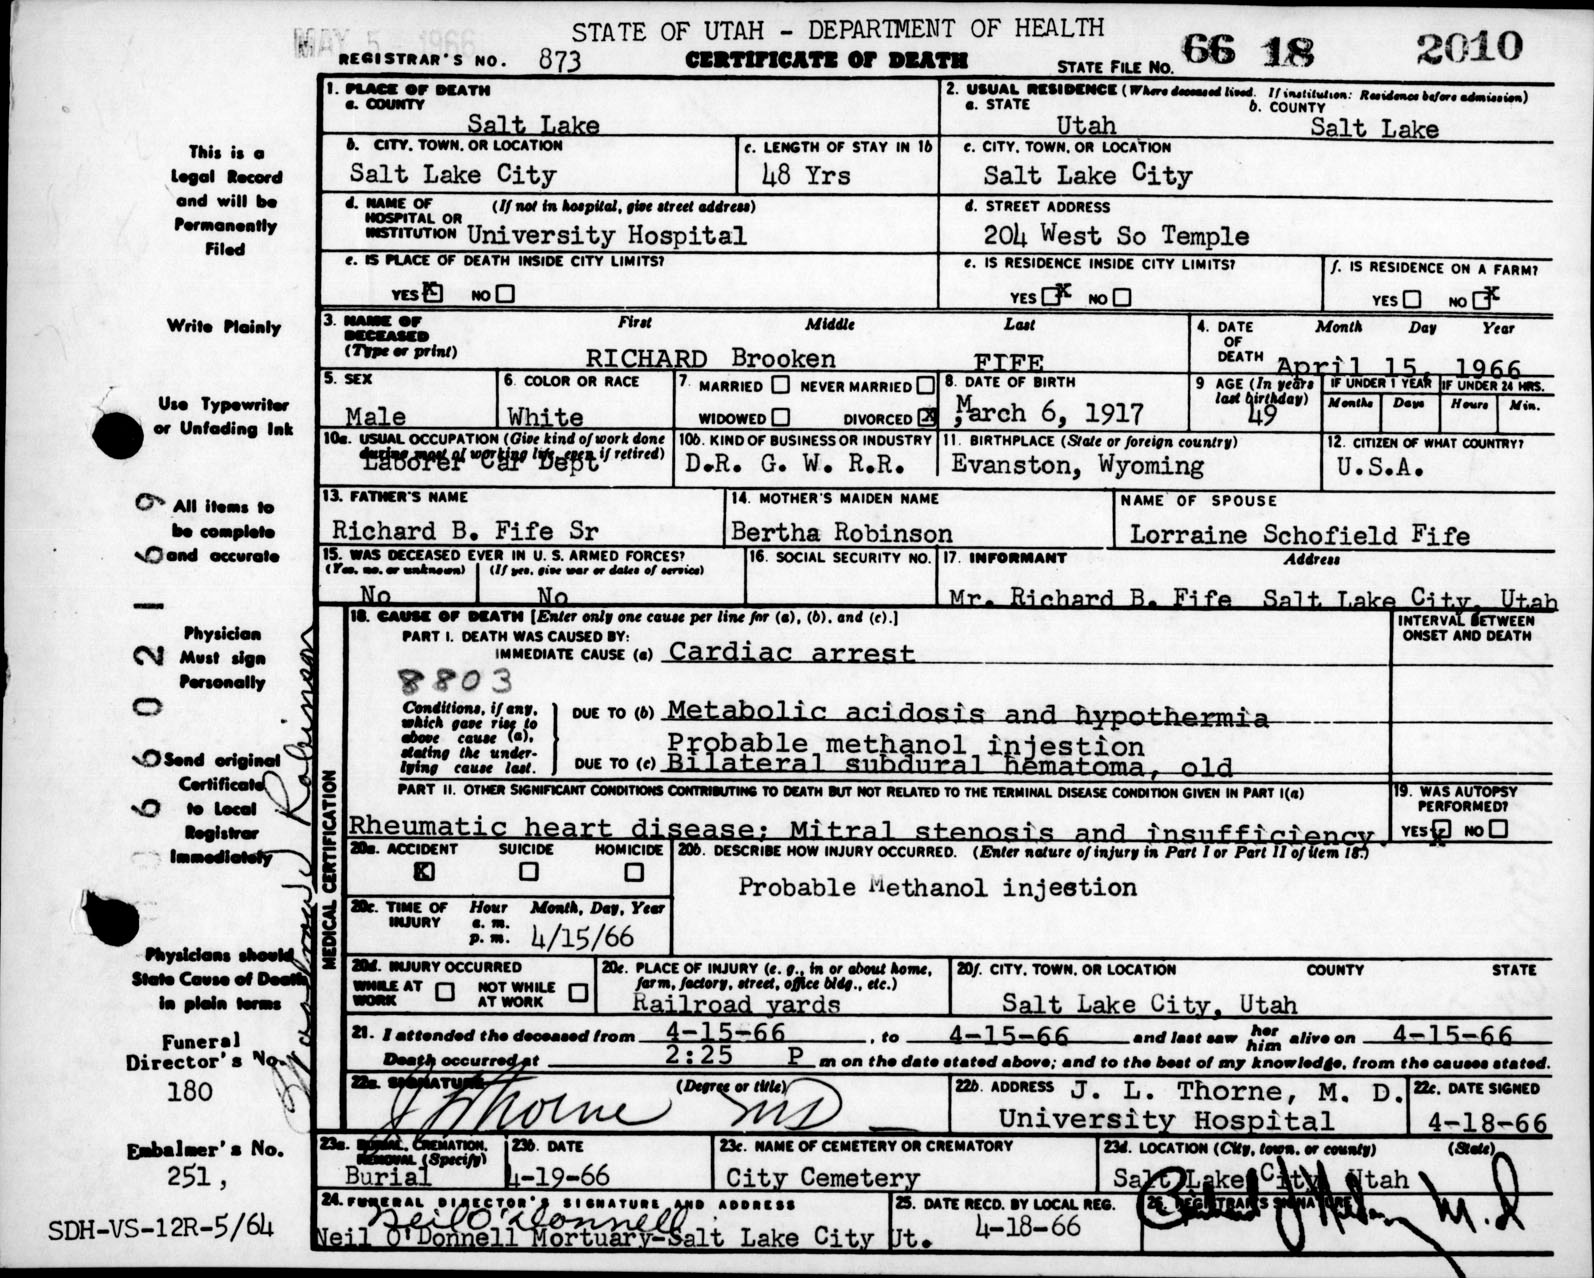 MAY 5 - 1966
STATE OF UTAH - DEPARTMENT OF HEALTH
REGISTRAR'S NO. 873
CERTIFICATE OF DEATH
STATE FILE NO. 66 18 2010
This is a
Legal Record
and will be
Permanently
Filed
Write Plainly
Use Typewriter
or Unfading Ink
All items to
be complete
and accurate
Physician
Must sign
Personally
Send original
Certificate
to Local
Registrar
Immediately
Physicians should
State Cause of Death
in plain terms
Funeral
Director's No.
180
Embalmer's No.
251,
SDH-VS-12R-5/64
1. PLACE OF DEATH
a. COUNTY
Salt Lake
2. USUAL RESIDENCE (Where deceased lived. If institution: Residence before admission)
a. STATE b. COUNTY
Utah Salt Lake
b. CITY, TOWN, OR LOCATION
Salt Lake City
c. LENGTH OF STAY IN 1b
48 Yrs
c. CITY, TOWN, OR LOCATION
Salt Lake City
d. NAME OF (If not in hospital, give street address)
HOSPITAL OR
INSTITUTION University Hospital
d. STREET ADDRESS
204 West So Temple
e. IS PLACE OF DEATH INSIDE CITY LIMITS?
YES X NO
e. IS RESIDENCE INSIDE CITY LIMITS?
YES X NO
f. IS RESIDENCE ON A FARM?
YES NO X
3. NAME OF DECEASED (Type or print)
First Middle Last
RICHARD Brooken FIFE
4. DATE OF DEATH
Month Day Year
April 15, 1966
5. SEX
Male
6. COLOR OR RACE
White
7. MARRIED NEVER MARRIED
WIDOWED DIVORCED X
8. DATE OF BIRTH
March 6, 1917
9 AGE (In years last birthday)
49
IF UNDER 1 YEAR
Months Days
IF UNDER 24 HRS.
Hours Min.
10a. USUAL OCCUPATION (Give kind of work done
during most of working life, even if retired)
Laborer Car Dept
10b. KIND OF BUSINESS OR INDUSTRY
D.R. G. W. R.R.
11. BIRTHPLACE (State or foreign country)
Evanston, Wyoming
12. CITIZEN OF WHAT COUNTRY?
U.S.A.
13. FATHER'S NAME
Richard B. Fife Sr
14. MOTHER'S MAIDEN NAME
Bertha Robinson
NAME OF SPOUSE
Lorraine Schofield Fife
15. WAS DECEASED EVER IN U. S. ARMED FORCES?
(Yes, no, or unknown) (If yes, give war or dates of service)
No No
16. SOCIAL SECURITY NO.
17. INFORMANT Address
Mr. Richard B. Fife Salt Lake City, Utah
MEDICAL CERTIFICATION
18. CAUSE OF DEATH [Enter only one cause per line for (a), (b), and (c).]
INTERVAL BETWEEN
ONSET AND DEATH
PART I. DEATH WAS CAUSED BY:
IMMEDIATE CAUSE (a) Cardiac arrest
8803
Conditions, if any,
which gave rise to
above cause (a),
stating the under-
lying cause last.
DUE TO (b) Metabolic acidosis and hypothermia
Probable methanol injestion
DUE TO (c) Bilateral subdural hematoma, old
PART II. OTHER SIGNIFICANT CONDITIONS CONTRIBUTING TO DEATH BUT NOT RELATED TO THE TERMINAL DISEASE CONDITION GIVEN IN PART I(a)
Rheumatic heart disease; Mitral stenosis and insufficiency.
19. WAS AUTOPSY
PERFORMED?
YES X NO
20a. ACCIDENT SUICIDE HOMICIDE
X
20b. DESCRIBE HOW INJURY OCCURRED. (Enter nature of injury in Part I or Part II of item 18.)
Probable Methanol injestion
20c. TIME OF INJURY
Hour Month, Day, Year
a. m.
p. m. 4/15/66
20d. INJURY OCCURRED
WHILE AT WORK NOT WHILE AT WORK
20e. PLACE OF INJURY (e. g., in or about home,
farm, factory, street, office bldg., etc.)
Railroad yards
20f. CITY, TOWN, OR LOCATION COUNTY STATE
Salt Lake City, Utah
21. I attended the deceased from 4-15-66, to 4-15-66 and last saw her him alive on 4-15-66
Death occurred at 2:25 P m on the date stated above; and to the best of my knowledge, from the causes stated.
22a. SIGNATURE (Degree or title)
J L Thorne MD
22b. ADDRESS J. L. Thorne, M. D.
University Hospital
22c. DATE SIGNED
4-18-66
23a. BURIAL, CREMATION,
REMOVAL (Specify)
Burial
23b. DATE
4-19-66
23c. NAME OF CEMETERY OR CREMATORY
City Cemetery
23d. LOCATION (City, town, or county) (State)
Salt Lake City Utah
24. FUNERAL DIRECTOR'S SIGNATURE AND ADDRESS
Neil O'Donnell
Neil O'Donnell Mortuary-Salt Lake City Ut.
25. DATE RECD. BY LOCAL REG.
4-18-66
26. REGISTRAR'S SIGNATURE
M.D
Robinson
6602169